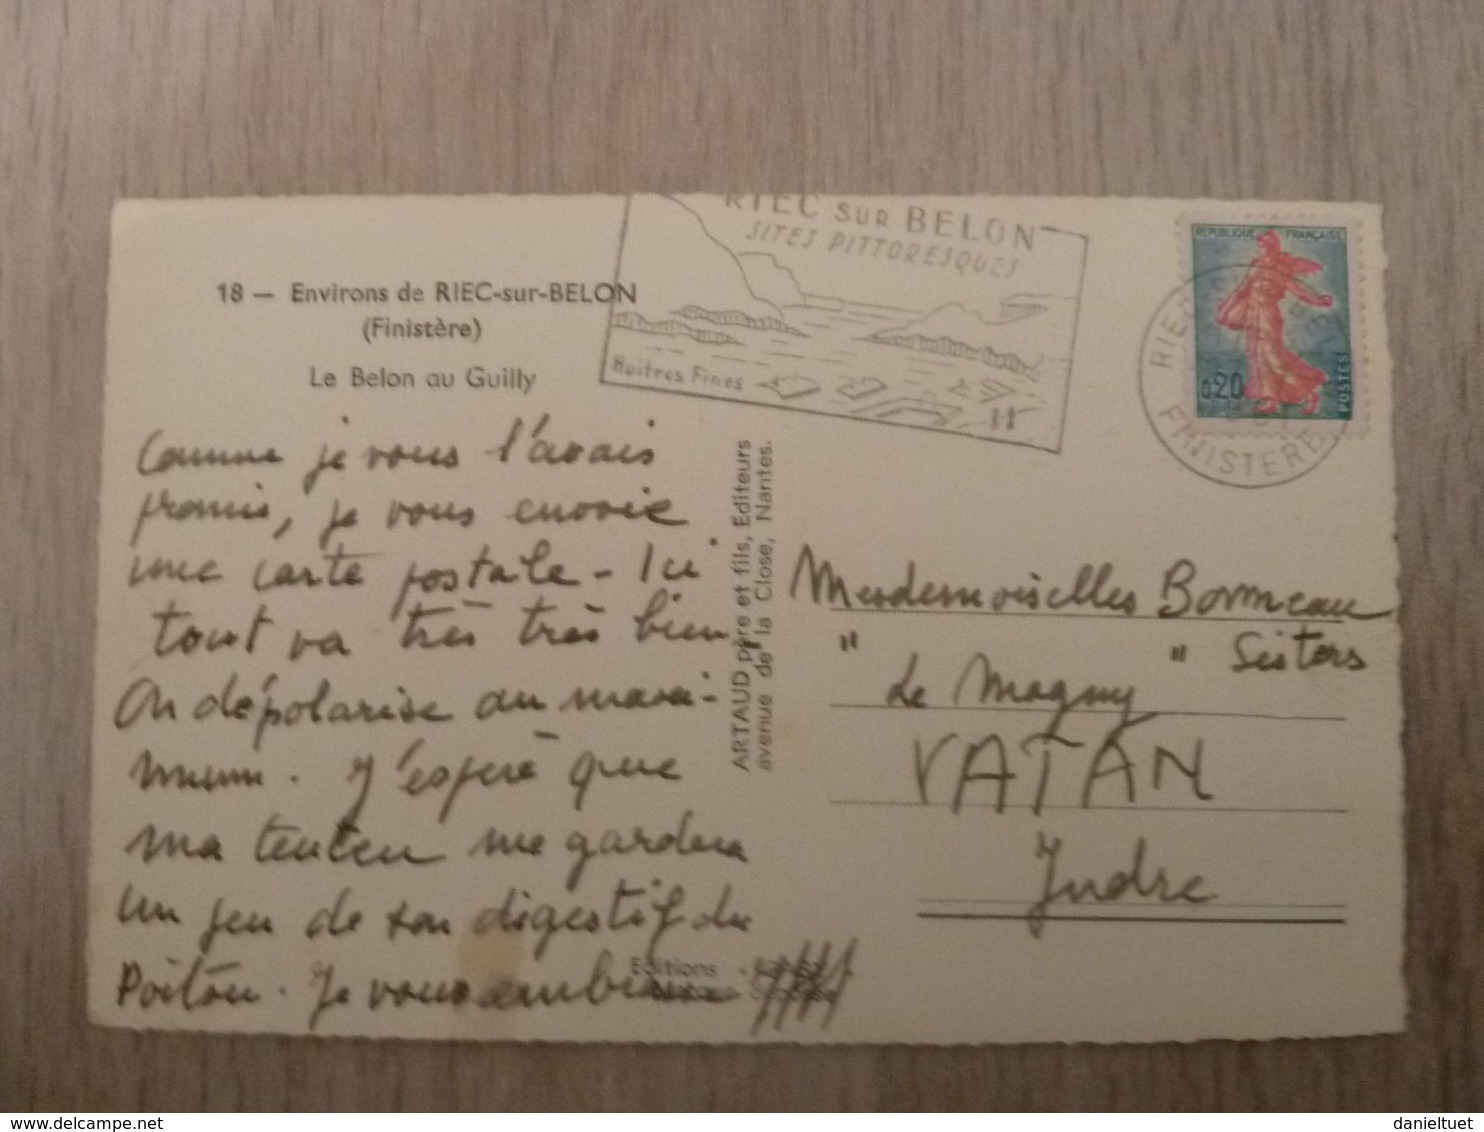 RIEC SUR BELON
SITES PITTORESQUES
Huîtres Fines
REPUBLIQUE FRANÇAISE
0,20
POSTES
RIEC
FINISTERE
18 — Environs de RIEC-sur-BELON
(Finistère)
Le Belon au Guilly
Comme je vous l'avais
promis, je vous envoie
une carte postale - Ici
tout va très très bien,
On dépolarise au maxi-
mum. J'espère que
ma me gardera
un peu de son digestif du
Poitou. Je vous
ARTAUD père et fils, Editeurs
avenue de la Close, Nantes.
Editions
Mesdemoiselles Bonneau
" " Sisters
Le Magny
VATAN
Indre
delcampe.net
danieltuet